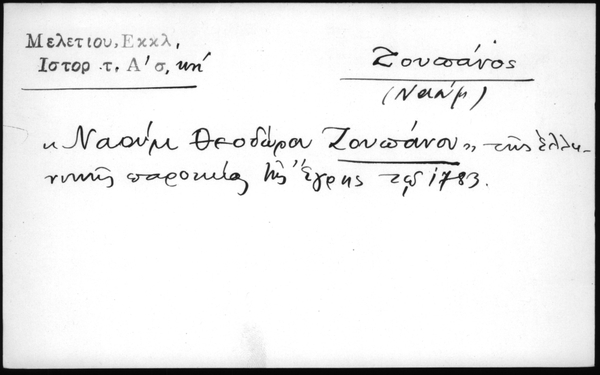 Μελετίου, Εκκλ,
Ιστορ .τ, Α' σ, κή
Ζουπάνος
(Ναούμ)
« Ναούμ Θεοδώρου Ζουπάνου » τῆς ἑλλη-
νικῆς παροικίας τῆς Ἔγρης τῷ 1783.